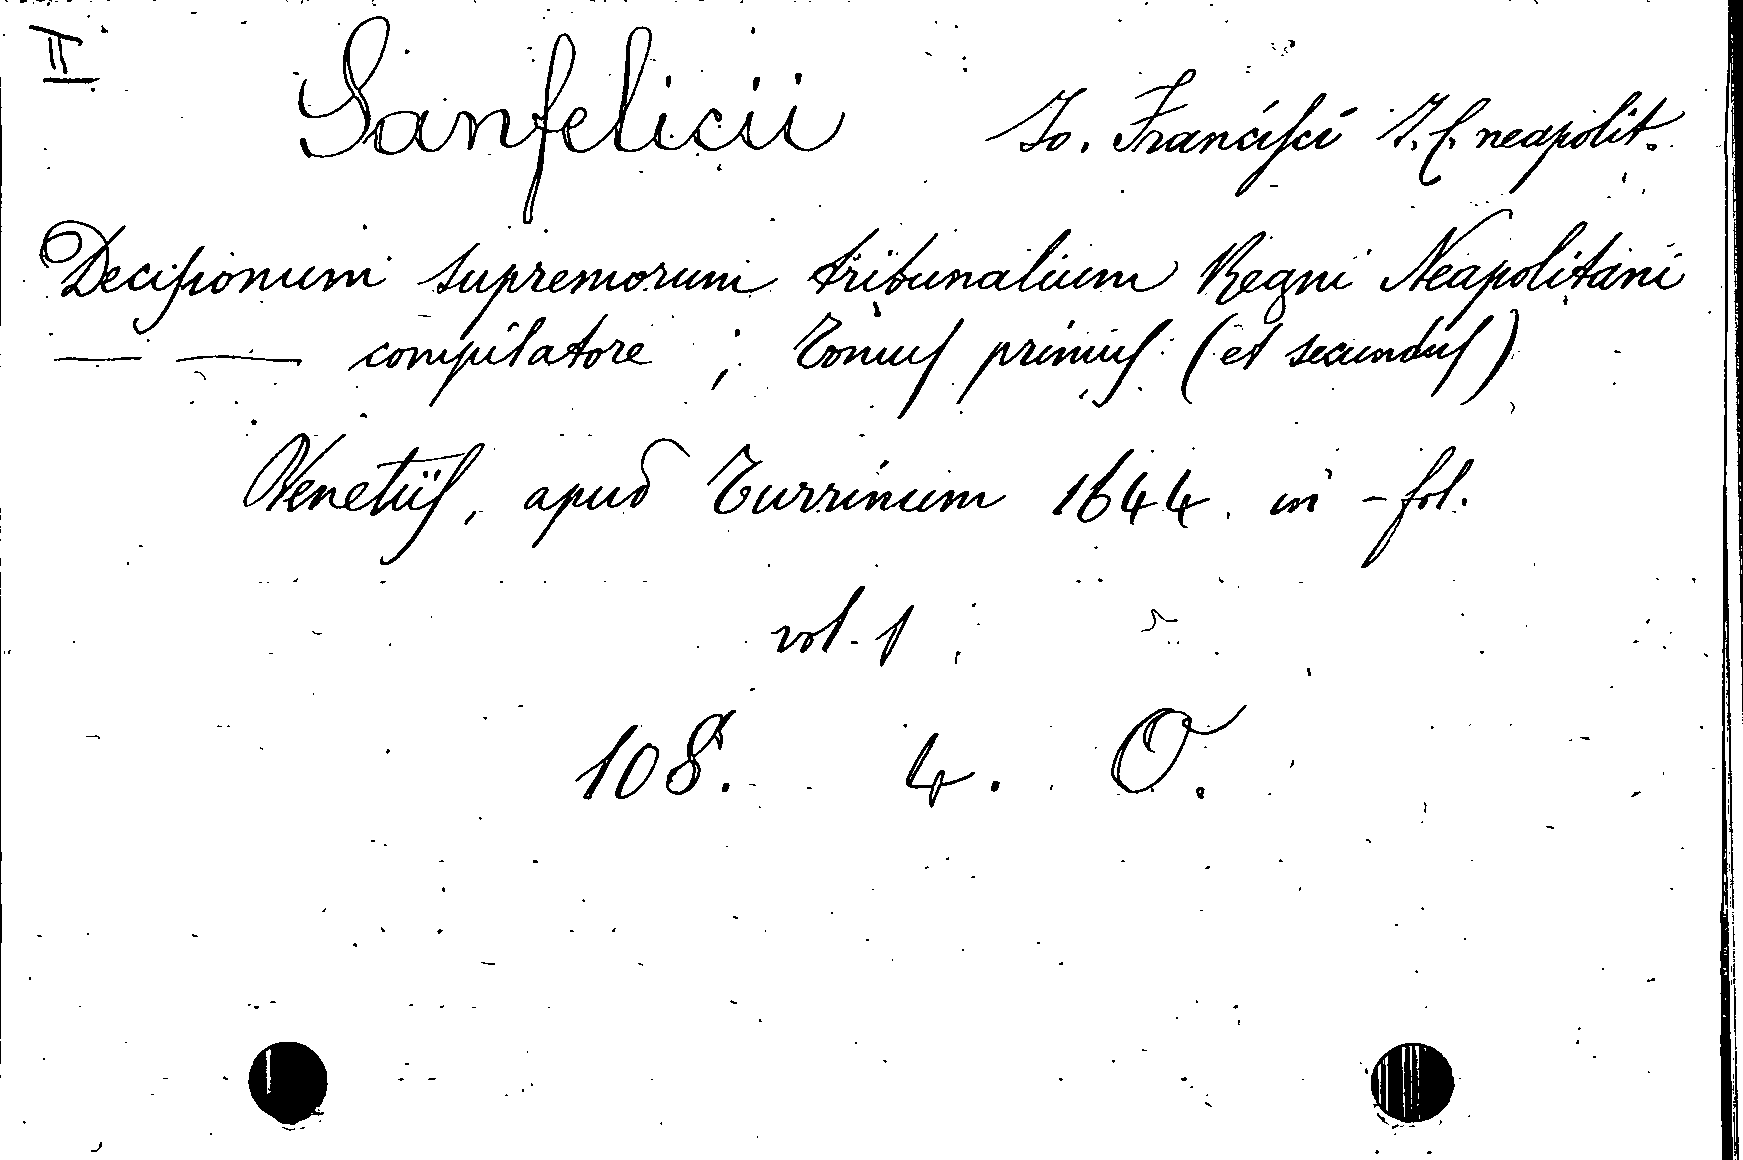 II
Sanfelicii Jo. Francisci J. C. neapolit.
Decisionum supremorum tribunalium Regni Neapolitani
— — compilatore ; Tomus primus (et secundus)
Venetiis, apud Turrinum 1644. in - fol.
vol. 1
108. 4. O.